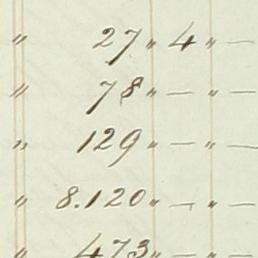 " 27 " 4 " —
" 78 " — " —
" 129 " — " —
" 8.120 " — " —
" 473 "